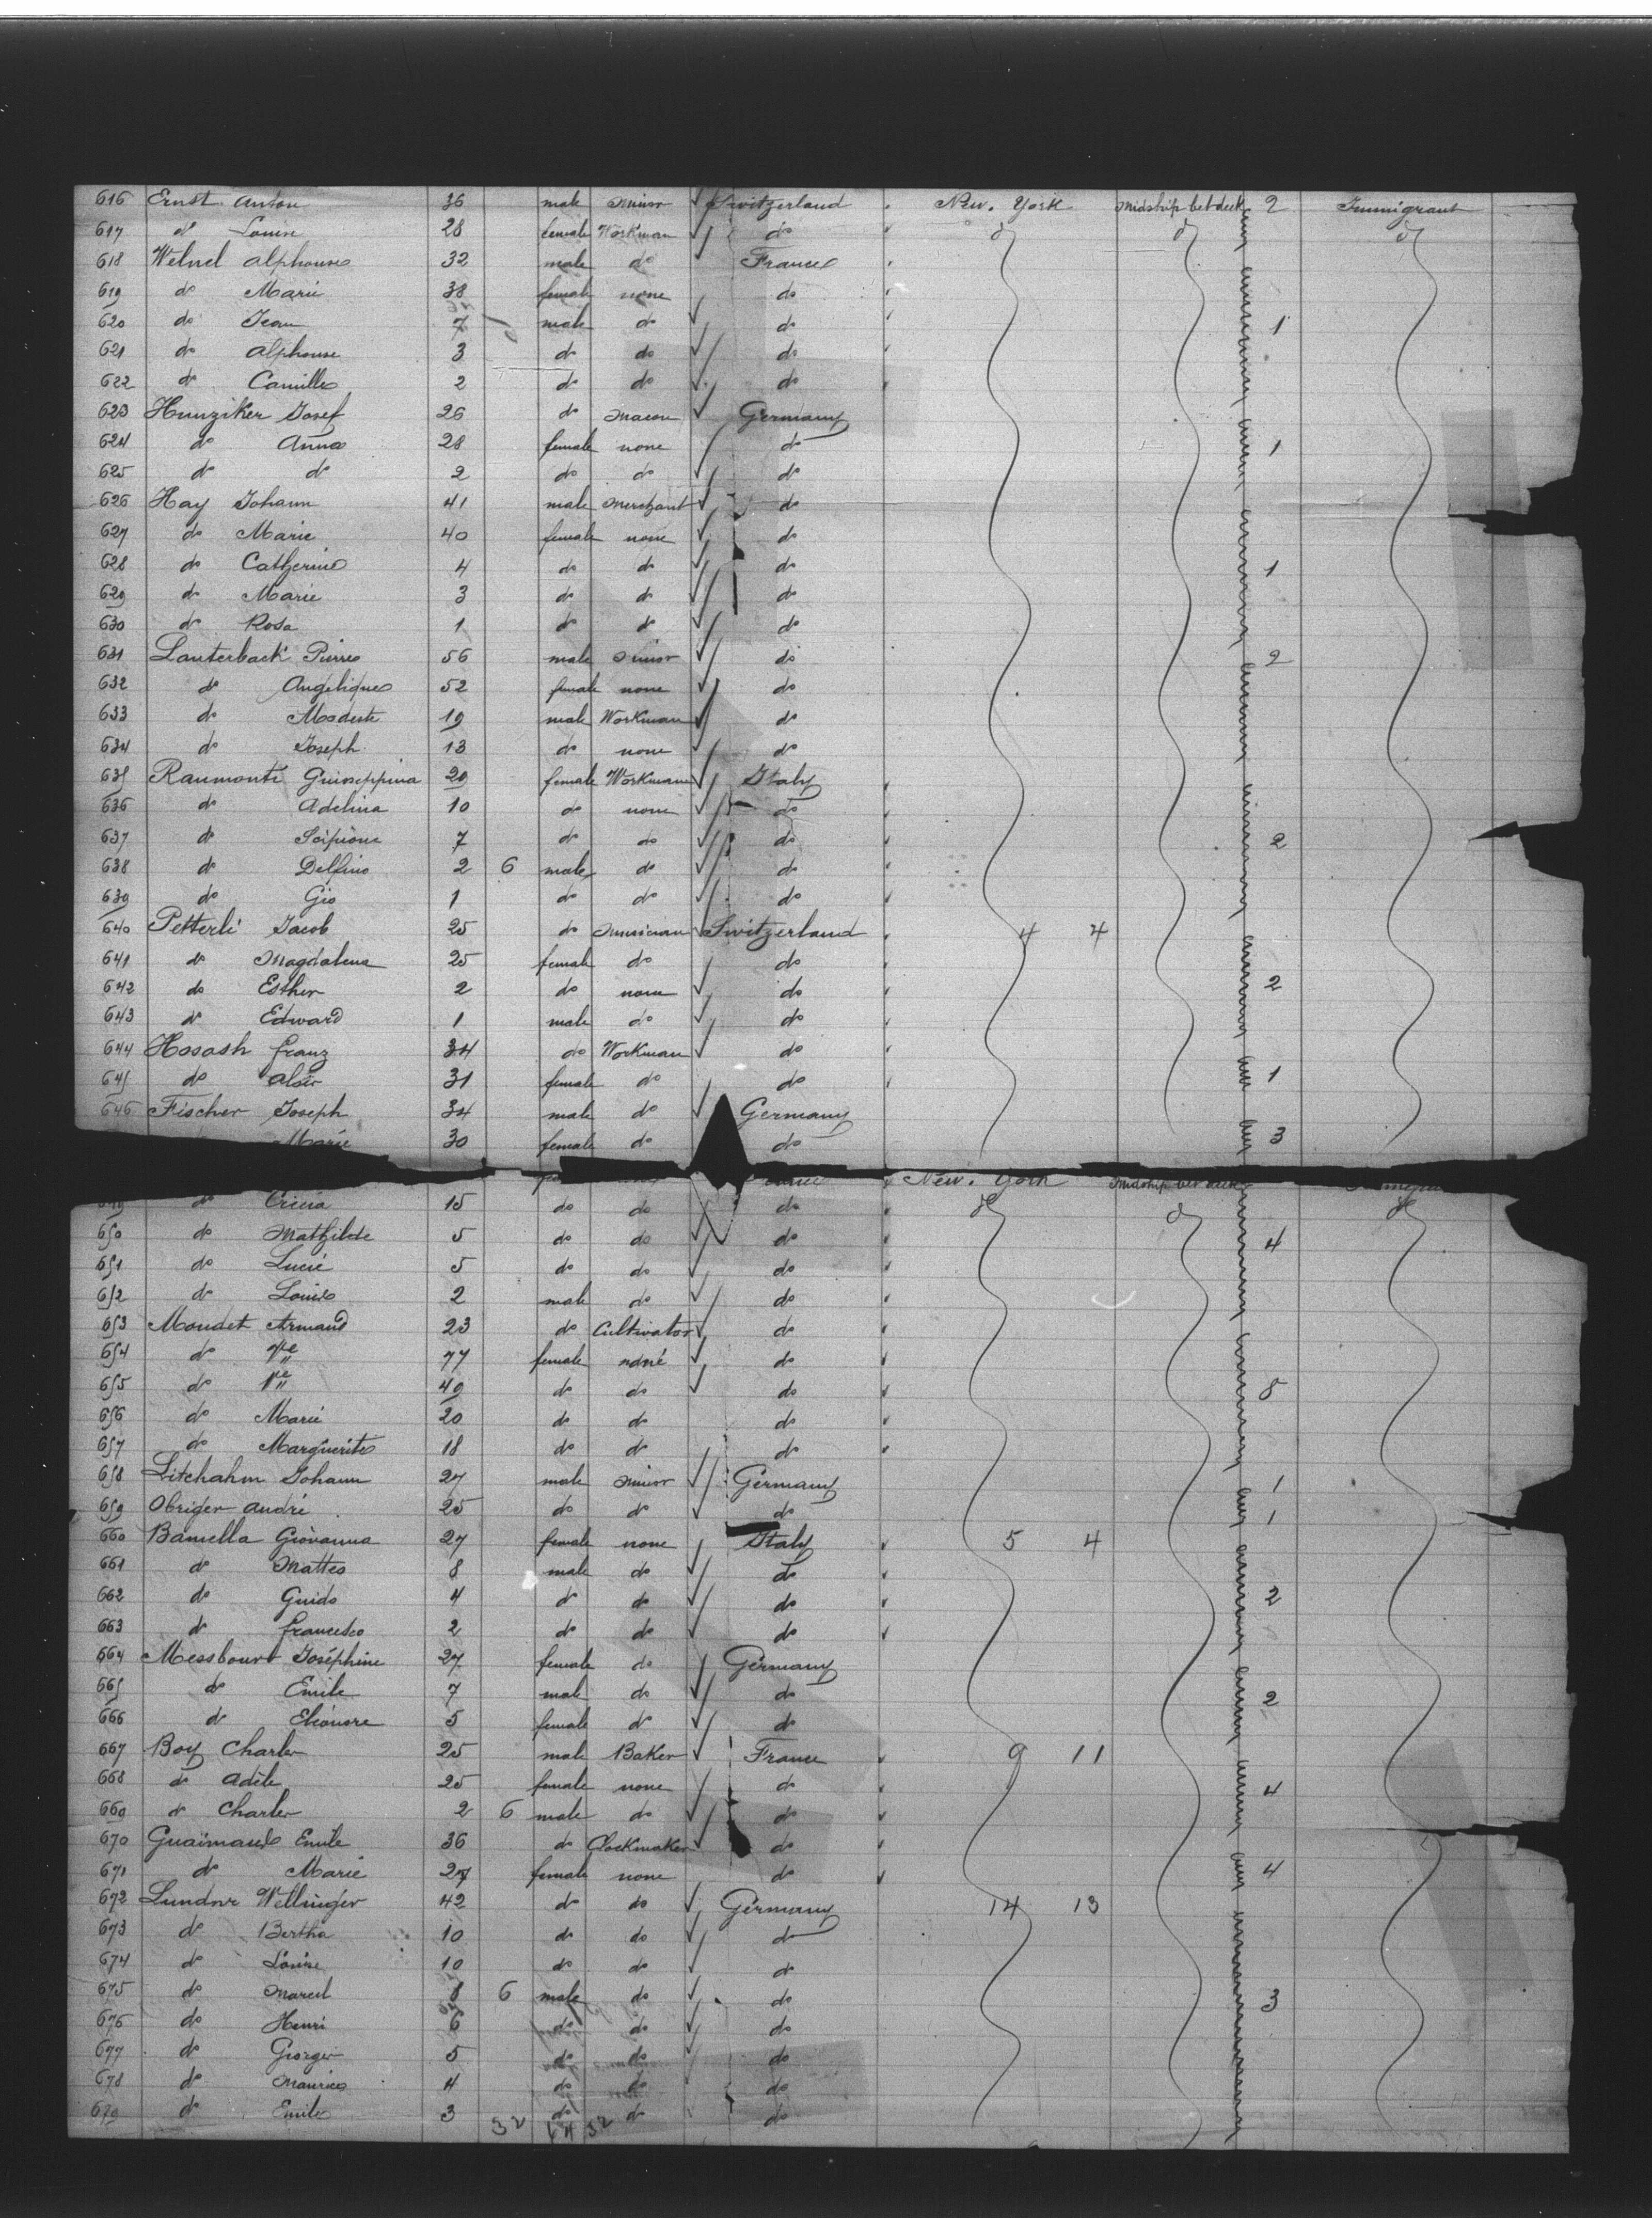 616 Ernst Anton 36 male minor Switzerland New. York midship bet deck 2 Immigrant
617 do Louise 28 female Workman do do do do
618 Welnel Alphonse 32 male do France
619 do Marie 38 female none do
620 do Jean 7 male do do 1
621 do Alphonse 3 do do do
622 do Camille 2 do do do
623 Hunziker Josef 26 do macon Germany
624 do Anna 28 female none do 1
625 do do 2 do do do
626 Hay Johann 41 male merchant do
627 do Marie 40 female none do
628 do Catherine 4 do do do 1
629 do Marie 3 do do do
630 do Rosa 1 do do do
631 Lauterback Pierre 56 male minor do 2
632 do Angelique 52 female none do
633 do Modeste 19 male Workman do
634 do Joseph 13 do none do
635 Raumonti Guiseppina 29 female Workman Italy
636 do Adelina 10 do none do
637 do Scipione 7 do do do 2
638 do Delfino 2 6 male do do
639 do Gio 1 do do do
640 Petterli Jacob 25 do musician Switzerland 4 4
641 do Magdalena 25 female do do
642 do Esther 2 do none do 2
643 do Edward 1 male do do
644 Hosash Franz 34 do Workman do
645 do 31 female do do 1
646 Fischer Joseph 34 male do Germany
Marie 30 female do do 3
New. York midship bet deck
do 15 do do do do do do
650 do Mathilde 5 do do do 4
651 do Lucie 5 do do do
652 do Louis 2 male do do
653 Moudet Armand 23 do Cultivator do
654 do Vve 77 female none do
655 do Vve 49 do do do 8
656 do Marie 20 do do do
657 do Marguerite 18 do do do
658 Litchahm Johann 27 male minor Germany 1
659 Obriger André 25 do do do 1
660 Bamella Giovanna 27 female none Italy 5 4
661 do Matteo 8 male do do
662 do Guido 4 do do do 2
663 do Francesco 2 do do do
664 Messbourt Joséphine 27 female do Germany
665 do Emile 7 male do do 2
666 do Eléonore 5 female do do
667 Boy Charles 25 male Baker France 9 11
668 do Adèle 25 female none do 4
669 do Charles 2 6 male do do
670 Guaimaud Emile 36 do Clockmaker do
671 do Marie 27 female none do 4
672 Lundner Wellinger 42 do do Germany 14 13
673 do Bertha 10 do do do
674 do Louise 10 do do do
675 do Marcel 8 6 male do do 3
676 do Henri 6 do do do
677 do Georges 5 do do do
678 do Maurice 4 do do do
679 do Emile 3 do do do
32 64 32